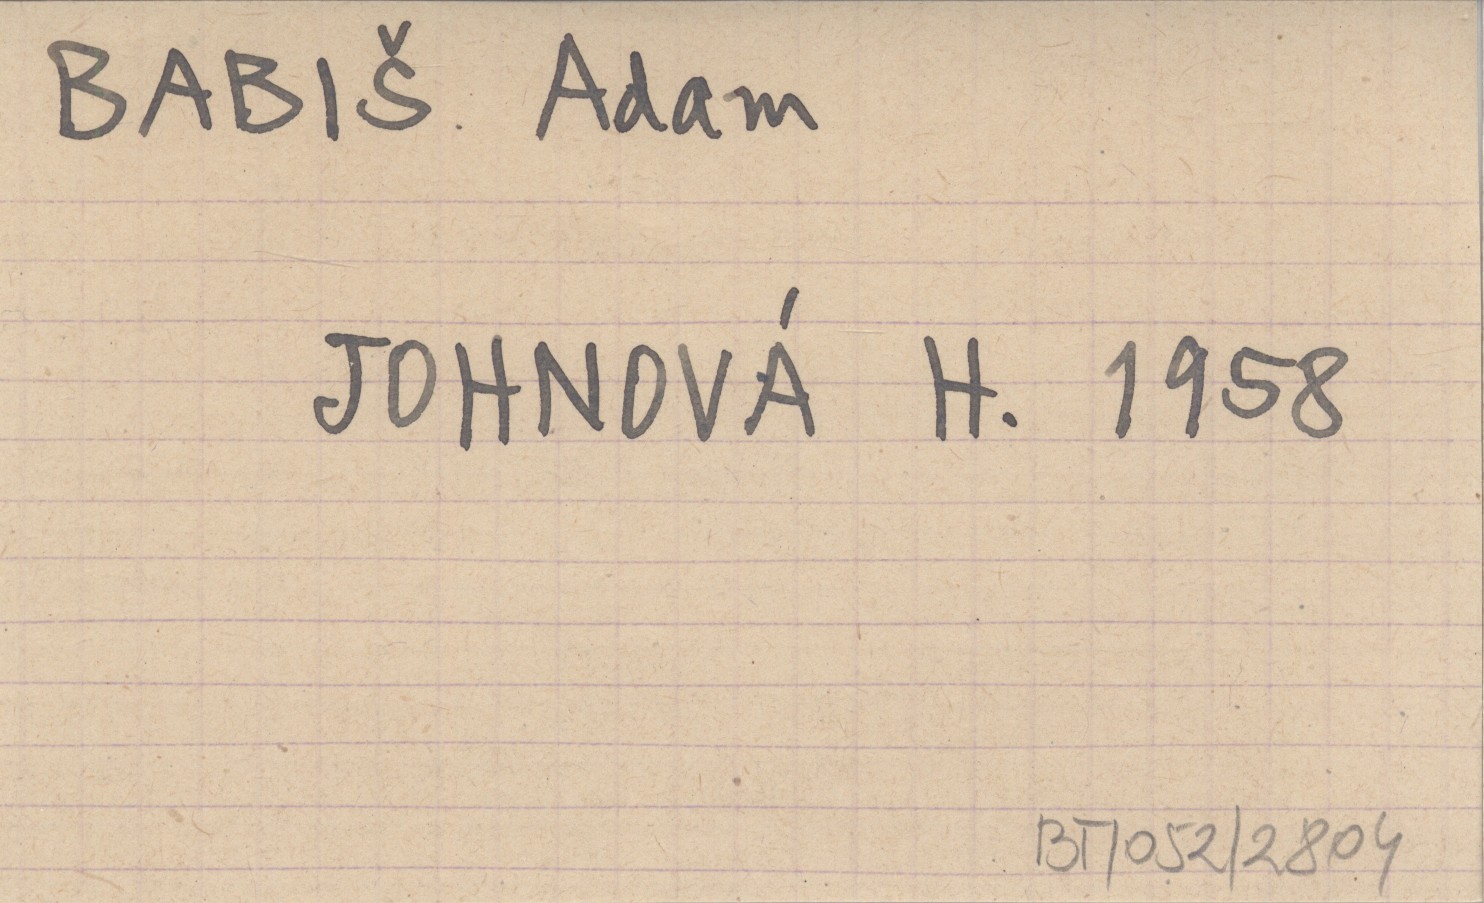 BABIŠ Adam
JOHNOVÁ H. 1958
BT/052/2804